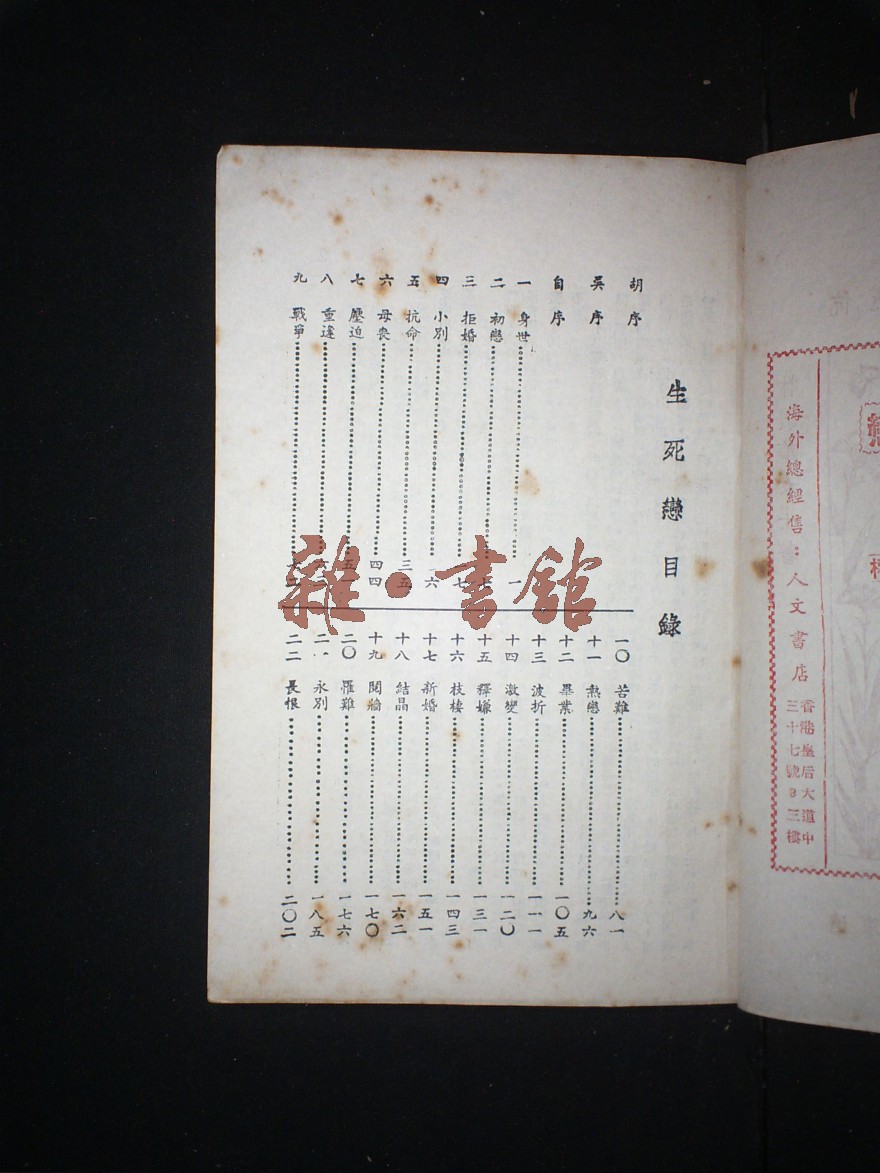 海外總經售：人文書店
香港皇后大道中
三十七號3三樓
生死戀目錄
胡序
吳序
自序
一 身世 一
二 初戀
三 拒婚
四 小別
五 抗命 三五
六 母喪 四四
七 壓迫
八 重違
九 戰爭
一〇 苦難 八一
十一 熱戀 九六
十二 畢業 一〇五
十三 波折 一一一
十四 激變 一二〇
十五 釋嫌 一三一
十六 枝棲 一四三
十七 新婚 一五一
十八 結晶 一六二
十九 鬩牆 一七〇
二〇 罹難 一七六
二一 永別 一八五
二二 長恨 二〇二
雜·書館